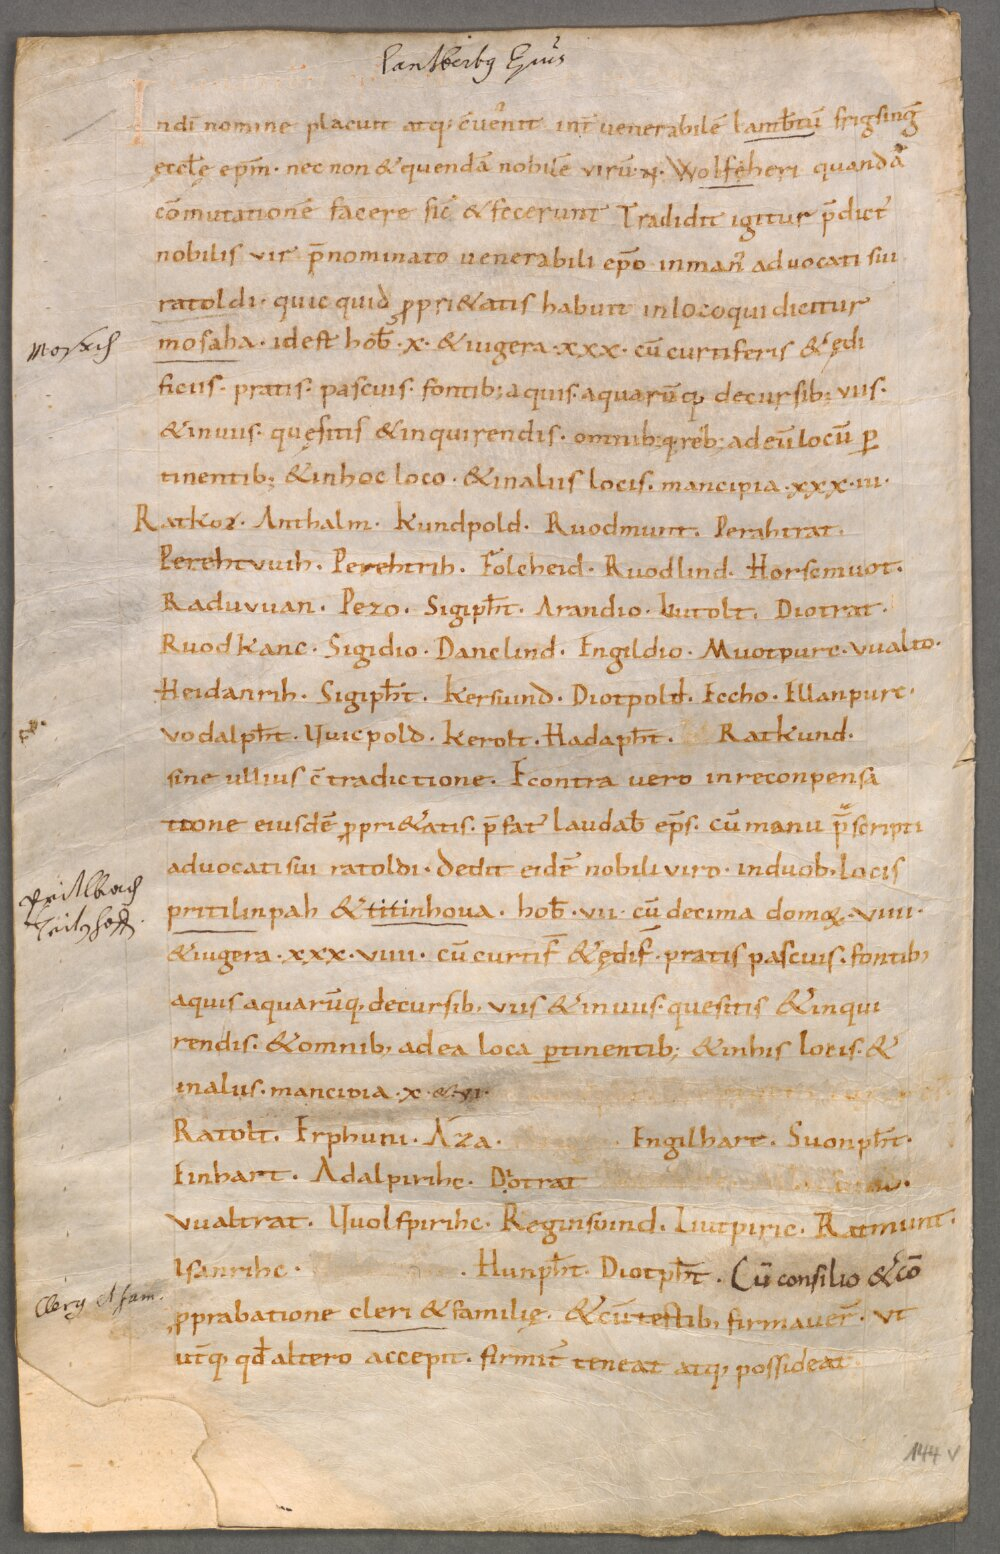 Lantbertus Epūs
Indī nomine placuit atq; c̄uenit int̄ venerabilē lantb̄tū frigsinḡ
ęccl̄ę ep̄m · nec non & quendā nobilē virū · N · Wolfheri quandā
cōmutationē facere sic & fecerunt Tradidit igitur p̄dict
nobilis vir p̄nominato uenerabili ep̄o in man̄ aduocati sui
ratoldi · quicquid ꝓpri&atis habuit in loco qui dicitur
Mosach
mosaha · id est hob̄ · x · & iugera · xxx · cū curtiferis & ędi
ficiis · pratis · pascuis · fontib; aquis · aquarūq; decursib; viis ·
& inuiis · quęsitis & inquirendis · omnib; q; reb; ad eū locū ꝑ
tinentib; & in hoc loco · & in aliis locis · mancipia · xxx · iii ·
Ratkoz · Anthalm · Kundpold · Ruodmunt · Perahtrat ·
Perehtvuih · Perehtrih · Folcheid · Ruodlind · Horscmuot ·
Raduvuan · Pezo · Sigiph̄t · Arandio · Liutolt · Diotrat ·
Ruodkanc · Sigidio · Danclind · Engildio · Muotpurc · Vualto ·
Heidanrih · Sigiph̄t · Kersuind · Diotpold · Eccho · Ellanpurc ·
Vodalph̄t · Vuicpold · Kerolt · Hadaph̄t · Ratkund ·
sine ullius c̄tradictione · Econtra uero in reconpensa
tione eiusdē ꝓpri&atis · p̄fat laudab̄ ep̄s · cū manu p̄scripti
aduocati sui ratoldi · dedit eidē nobili uiro · in duob, locis
Pritlbach
pritilinpah & titinhoua · hob̄ · vii · cū decima domꝰ · viiii ·
& iugera · xxx · viiii · cū curtif̄ & ędif̄ · pratis pascuis · fontib,
aquis aquarūq, decursib, viis & inuiis · quesitis & inqui
rendis · & omnib, ad ea loca ꝑtinentib; & in his locis · &
in aliis · mancipia · x · & vi ·
Ratolt · Erphuni · Aza · Engilhart · Suonph̄t ·
Einhart · Adalpirihc · Diotrat
Vualtrat · Vuolfpirihc · Reginsuind · Liutpiric · Ratmunt ·
Isanrihc · · Hunph̄t · Diotph̄t · Cū consilio & cō
Clerg et fam.
ꝓprabatione cleri & familię · & cū testib, firmauer̄ · vt
ut̄q, qd̄ altero accepit · firmit̄ teneat atq, possideat ·
144 v